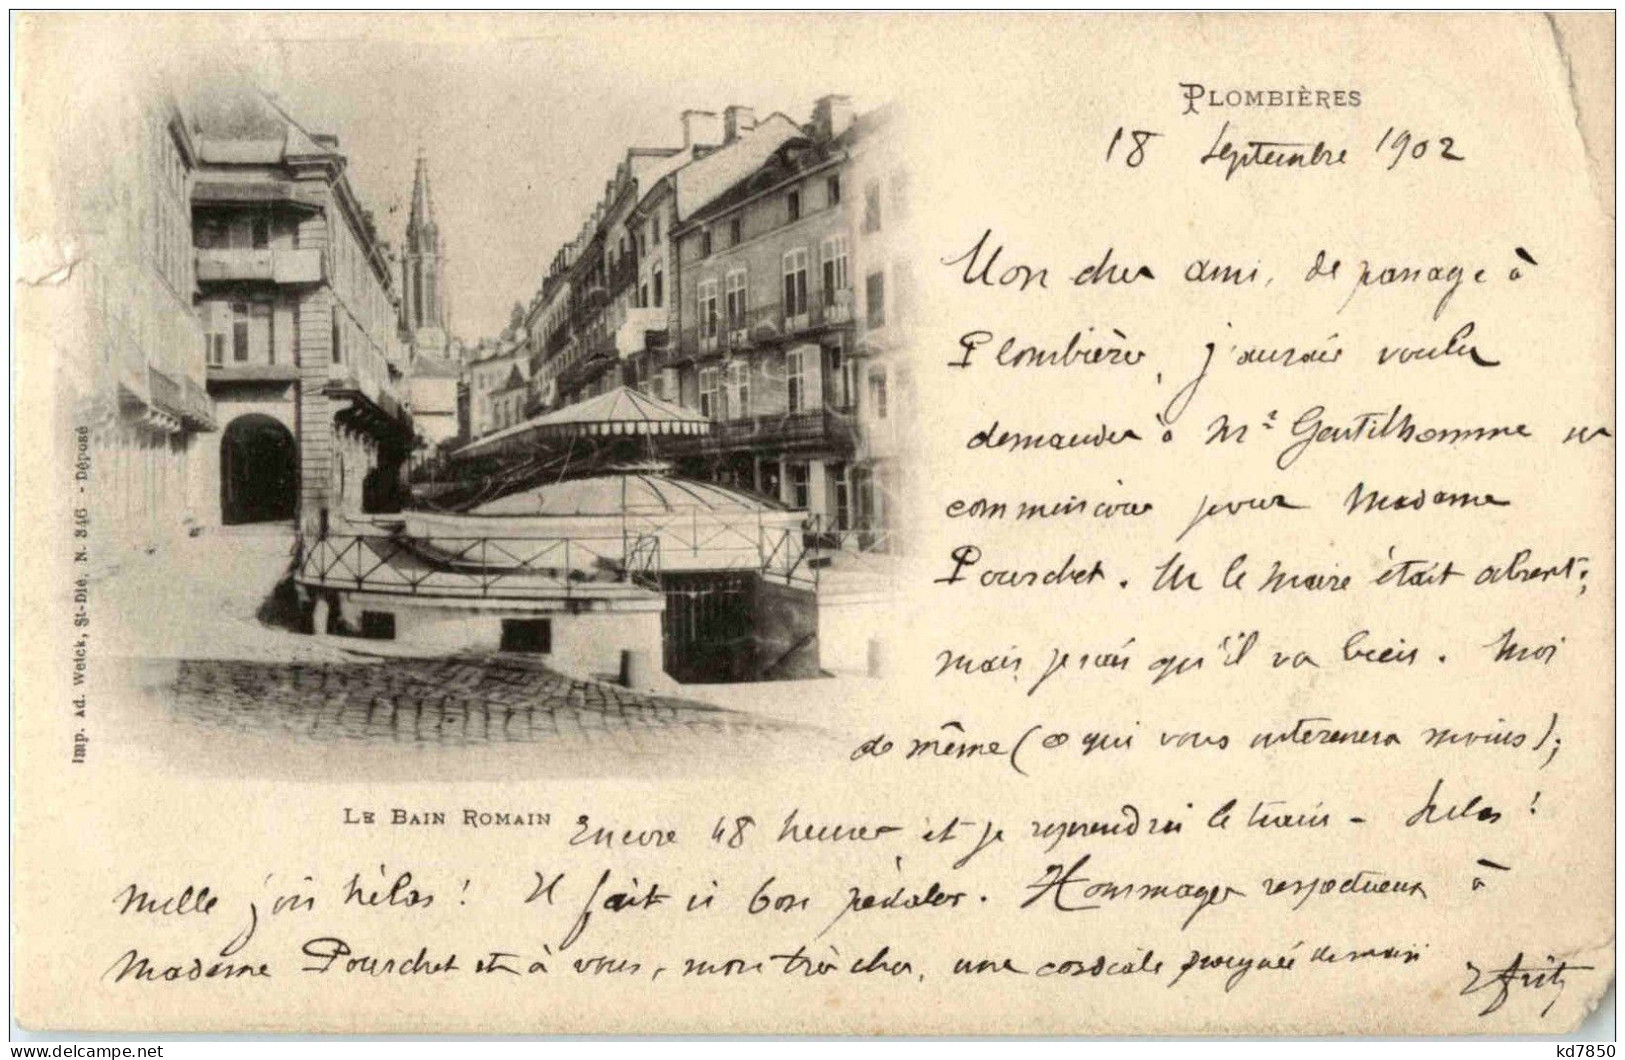 PLOMBIÈRES
18 Septembre 1902
Mon cher ami, de passage à
Plombières, j'aurais voulu
demander à Mr Gentilhomme ses
commissions pour Madame
Pourchet. M le Maire était absent;
mais je sais qu'il va bien. Moi
de même (ce qui vous intéressera moins);
LE BAIN ROMAIN
Encore 48 heures et je reprendrai le train - hélas!
Mille fois hélas! Il fait si bon pédaler. Hommages respectueux à
Madame Pourchet et à vous, mon très cher, une cordiale poignée de main
Fritz
Imp. Ad. Weick, St-Dié, N. 346 - Déposé
kd7850